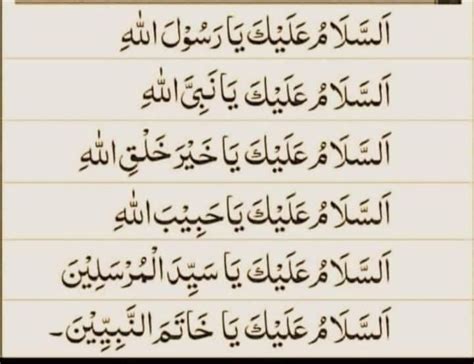 اَلسَّلَامُ عَلَيْكَ يَا رَسُوْلَ اللهِ
اَلسَّلَامُ عَلَيْكَ يَا نَبِيَّ اللهِ
اَلسَّلَامُ عَلَيْكَ يَا خَيْرَ خَلْقِ اللهِ
اَلسَّلَامُ عَلَيْكَ يَا حَبِيْبَ اللهِ
اَلسَّلَامُ عَلَيْكَ يَا سَيِّدَ الْمُرْسَلِيْنَ
اَلسَّلَامُ عَلَيْكَ يَا خَاتَمَ النَّبِيِّيْنَ۔